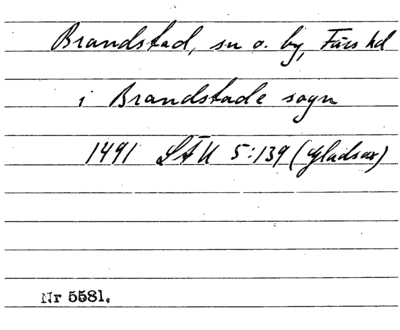 Brandstad, sn o. by, Färs hd
i Brandstade sogn
1491 SÄU 5:139 (Gladsax)
Nr 5581.